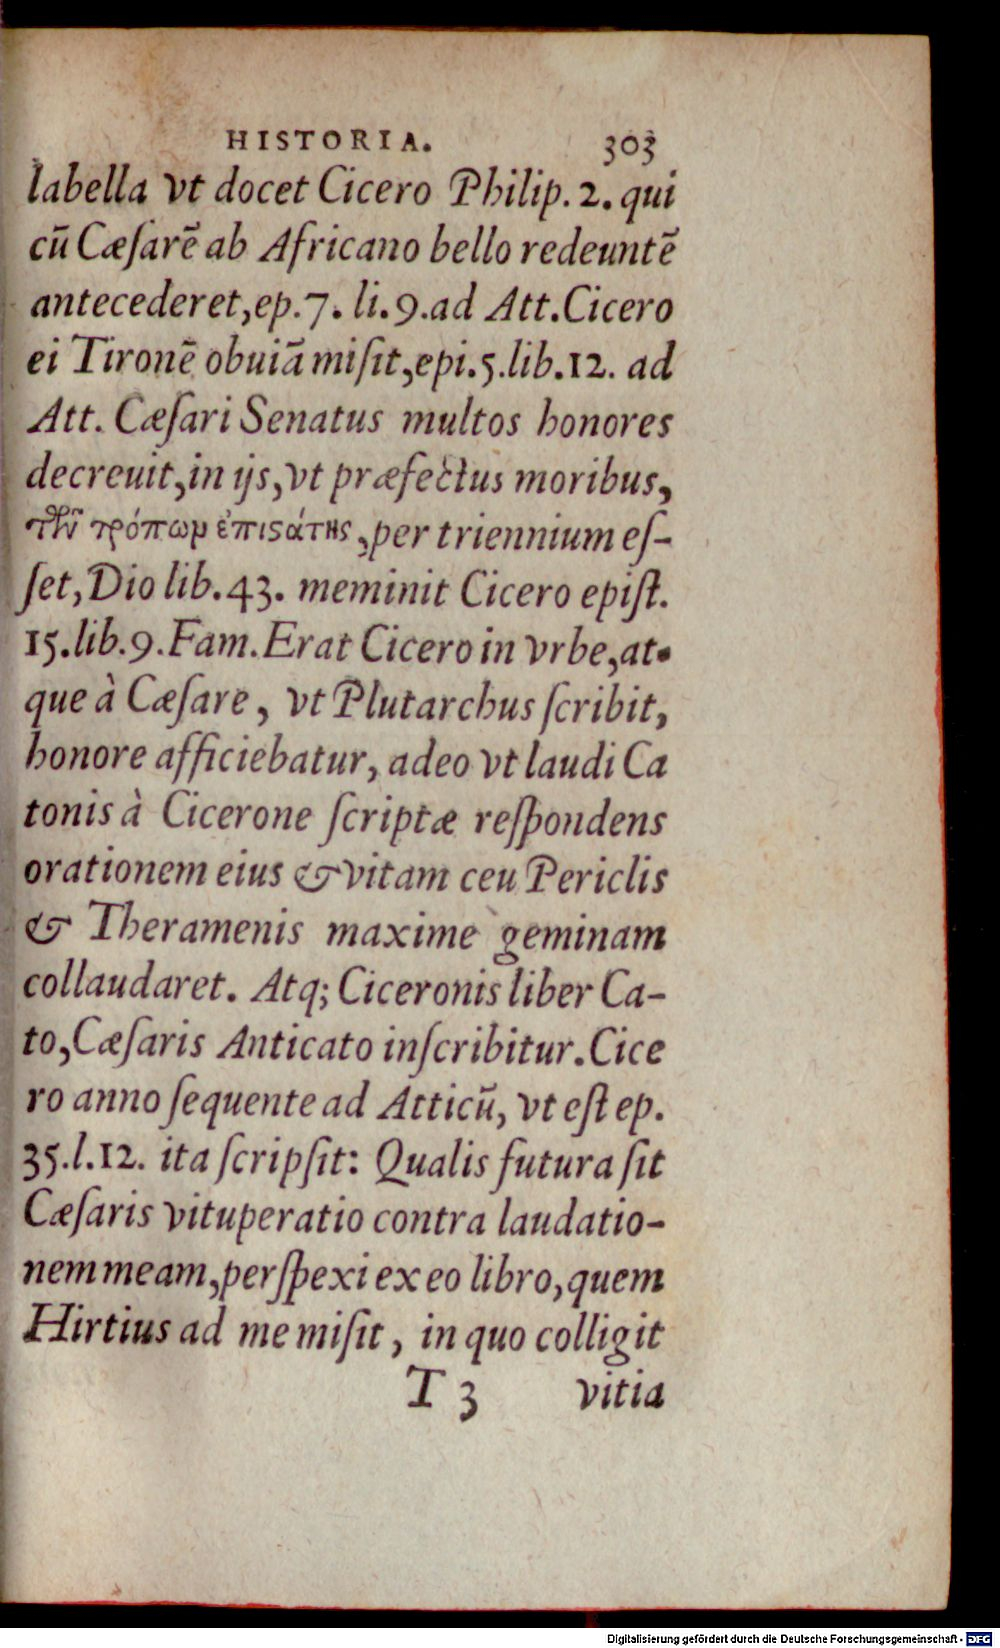 HISTORIA. 303
labella vt docet Cicero Philip. 2. qui
cū Cæſarē ab Africano bello redeuntē
antecederet, ep. 7. li. 9. ad Att. Cicero
ei Tironē obuiā miſit, epi. 5. lib. 12. ad
Att. Cæſari Senatus multos honores
decreuit, in ijs, vt præfectus moribus,
τῶν τρόπων ἐπιϛάτης, per triennium eſ-
ſet, Dio lib. 43. meminit Cicero epiſt.
15. lib. 9. Fam. Erat Cicero in vrbe, at-
que à Cæſare, vt Plutarchus ſcribit,
honore afficiebatur, adeo vt laudi Ca
tonis à Cicerone ſcriptæ reſpondens
orationem eius & vitam ceu Periclis
& Theramenis maxime geminam
collaudaret. Atq; Ciceronis liber Ca-
to, Cæſaris Anticato inſcribitur. Cice
ro anno ſequente ad Atticū, vt eſt ep.
35. l. 12. ita ſcripſit: Qualis futura ſit
Cæſaris vituperatio contra laudatio-
nem meam, perſpexi ex eo libro, quem
Hirtius ad me miſit, in quo colligit
T 3 vitia
Digitalisierung gefördert durch die Deutsche Forschungsgemeinschaft - DFG